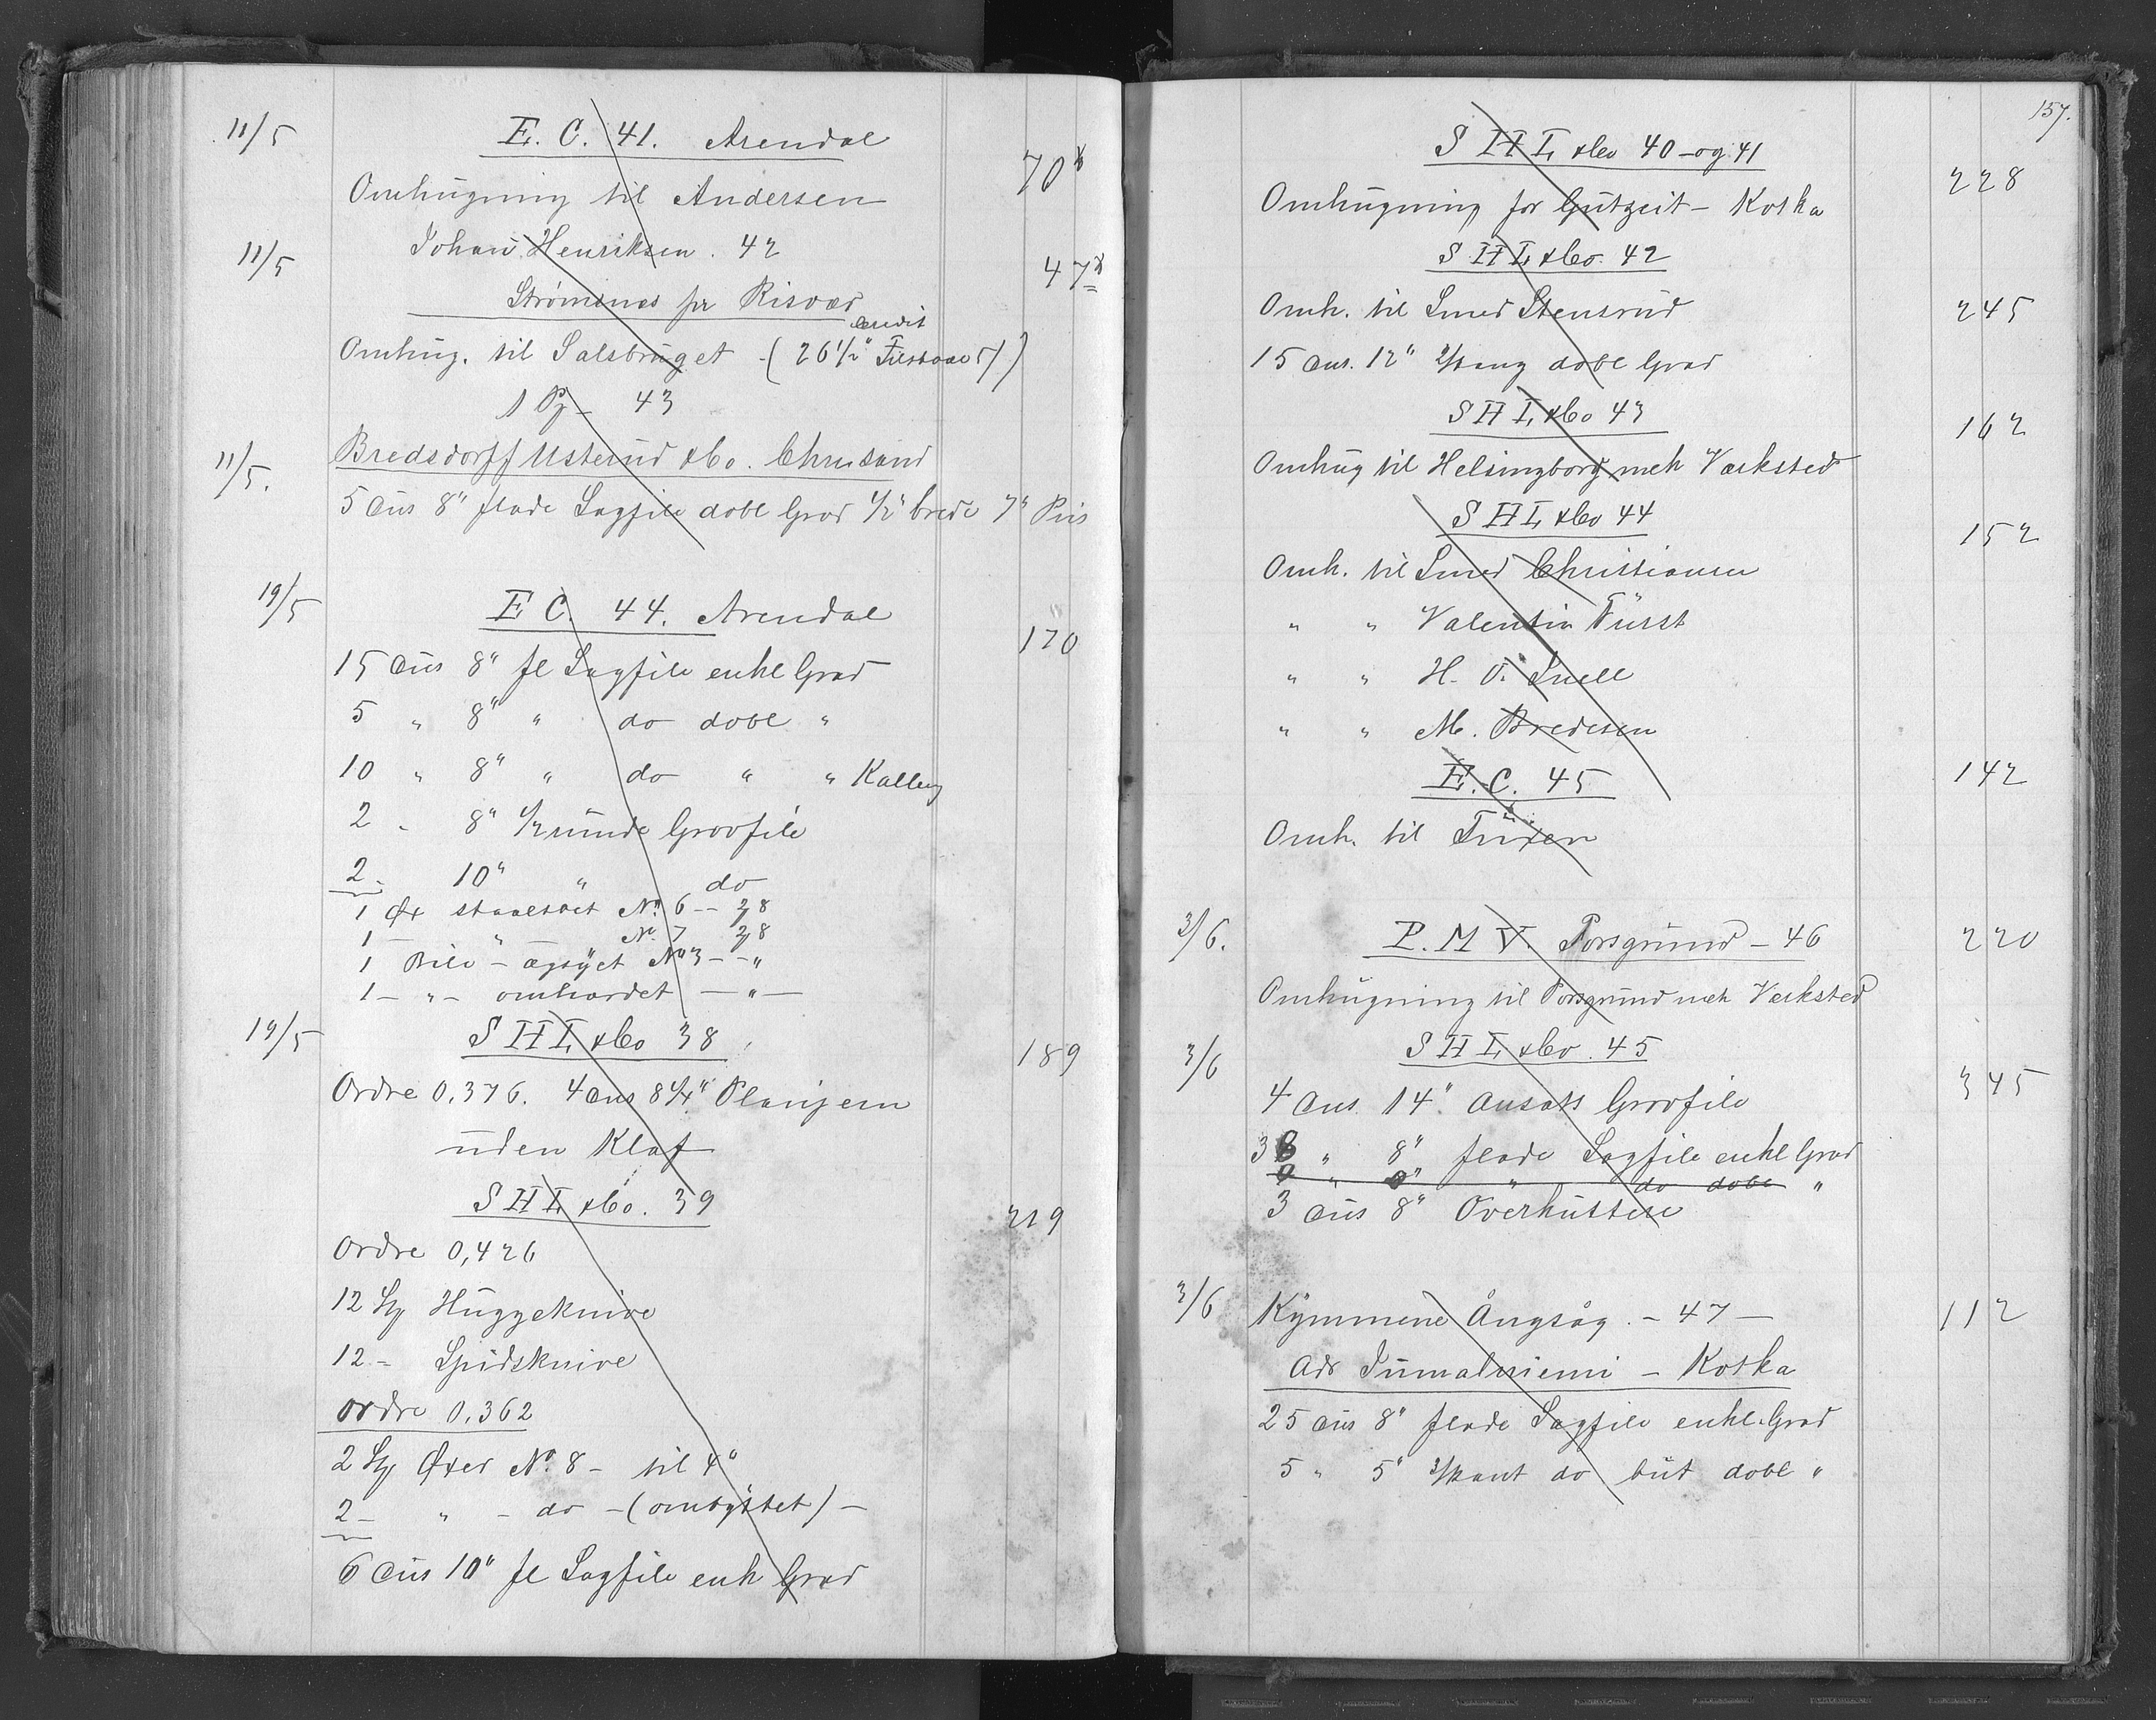 11/5 E. C. 41. Arendal
Omhugning til Andersen 70
11/5 Johan Henriksen. 42
Strømsnes pr Risør 47
Omhug. til Salsbruget - (26 1/2"
1 P - 43
11/5. Bredsdorff Usterud & Co. Chrsand
5 Dus 8" flade Sagfile dobl Grad 1/2" brede 7" Pris
19/5 E C. 44. Arendal
170
15 Dus 8" fl Sagfile enkl Grad
5 " 8" " do dobl "
10 " 8" " do " "
2 " 8" 1/2 runde Grovfile
2 - 10" " do
1 Øx No. 6 -- 8
1 " No. 7 8
1 Bile - No 3 -- "
1 - " - omhærdet - " -
19/5 S H L & Co 38
189
Ordre 0,376. 4 Dus 8 1/4" Planijern
uden Klaf
S H L & Co. 39
219
Ordre 0,426
12 Stk Huggeknive
12 - Spidsknive
Ordre 0,362
2 Stk Øxer No. 8 - til 4"
2 - " - do - (ombyttet) -
6 Dus 10" fl Sagfile enk Grad
157.
S H L & Co 40 - og 41
228
Omhugning for Gutzeit - Kotka
S H L & Co. 42
Omh. til Smed Stensrud 245
15 Dus. 12" dobl Grad
S H L & Co 43
162
Omhug til Helsingborg mek Værksted
S H L & Co 44
152
Omh. til Smed Christiansen
" " Valentin Fürst
" " H. O. Snell
" " M. Bredesen
E. C. 45 142
Omh. til Tuxen
3/6. P. M V. Porsgrund - 46 220
Omhugning til Porsgrund mek Verksted
3/6 S H L & Co. 45
345
4 Dus. 14". Ansats Grovfile
36 " 8" flade Sagfile enkl Grad
" " do dobl "
3 Dus 8" Overhuttere
3/6 Kymmene Ångsåg. - 47 - 112
Adr Jumalniemi - Kotka
25 Dus 8" flade Sagfile enkl. Grad
5 " 5" 3/kant do but dobl "